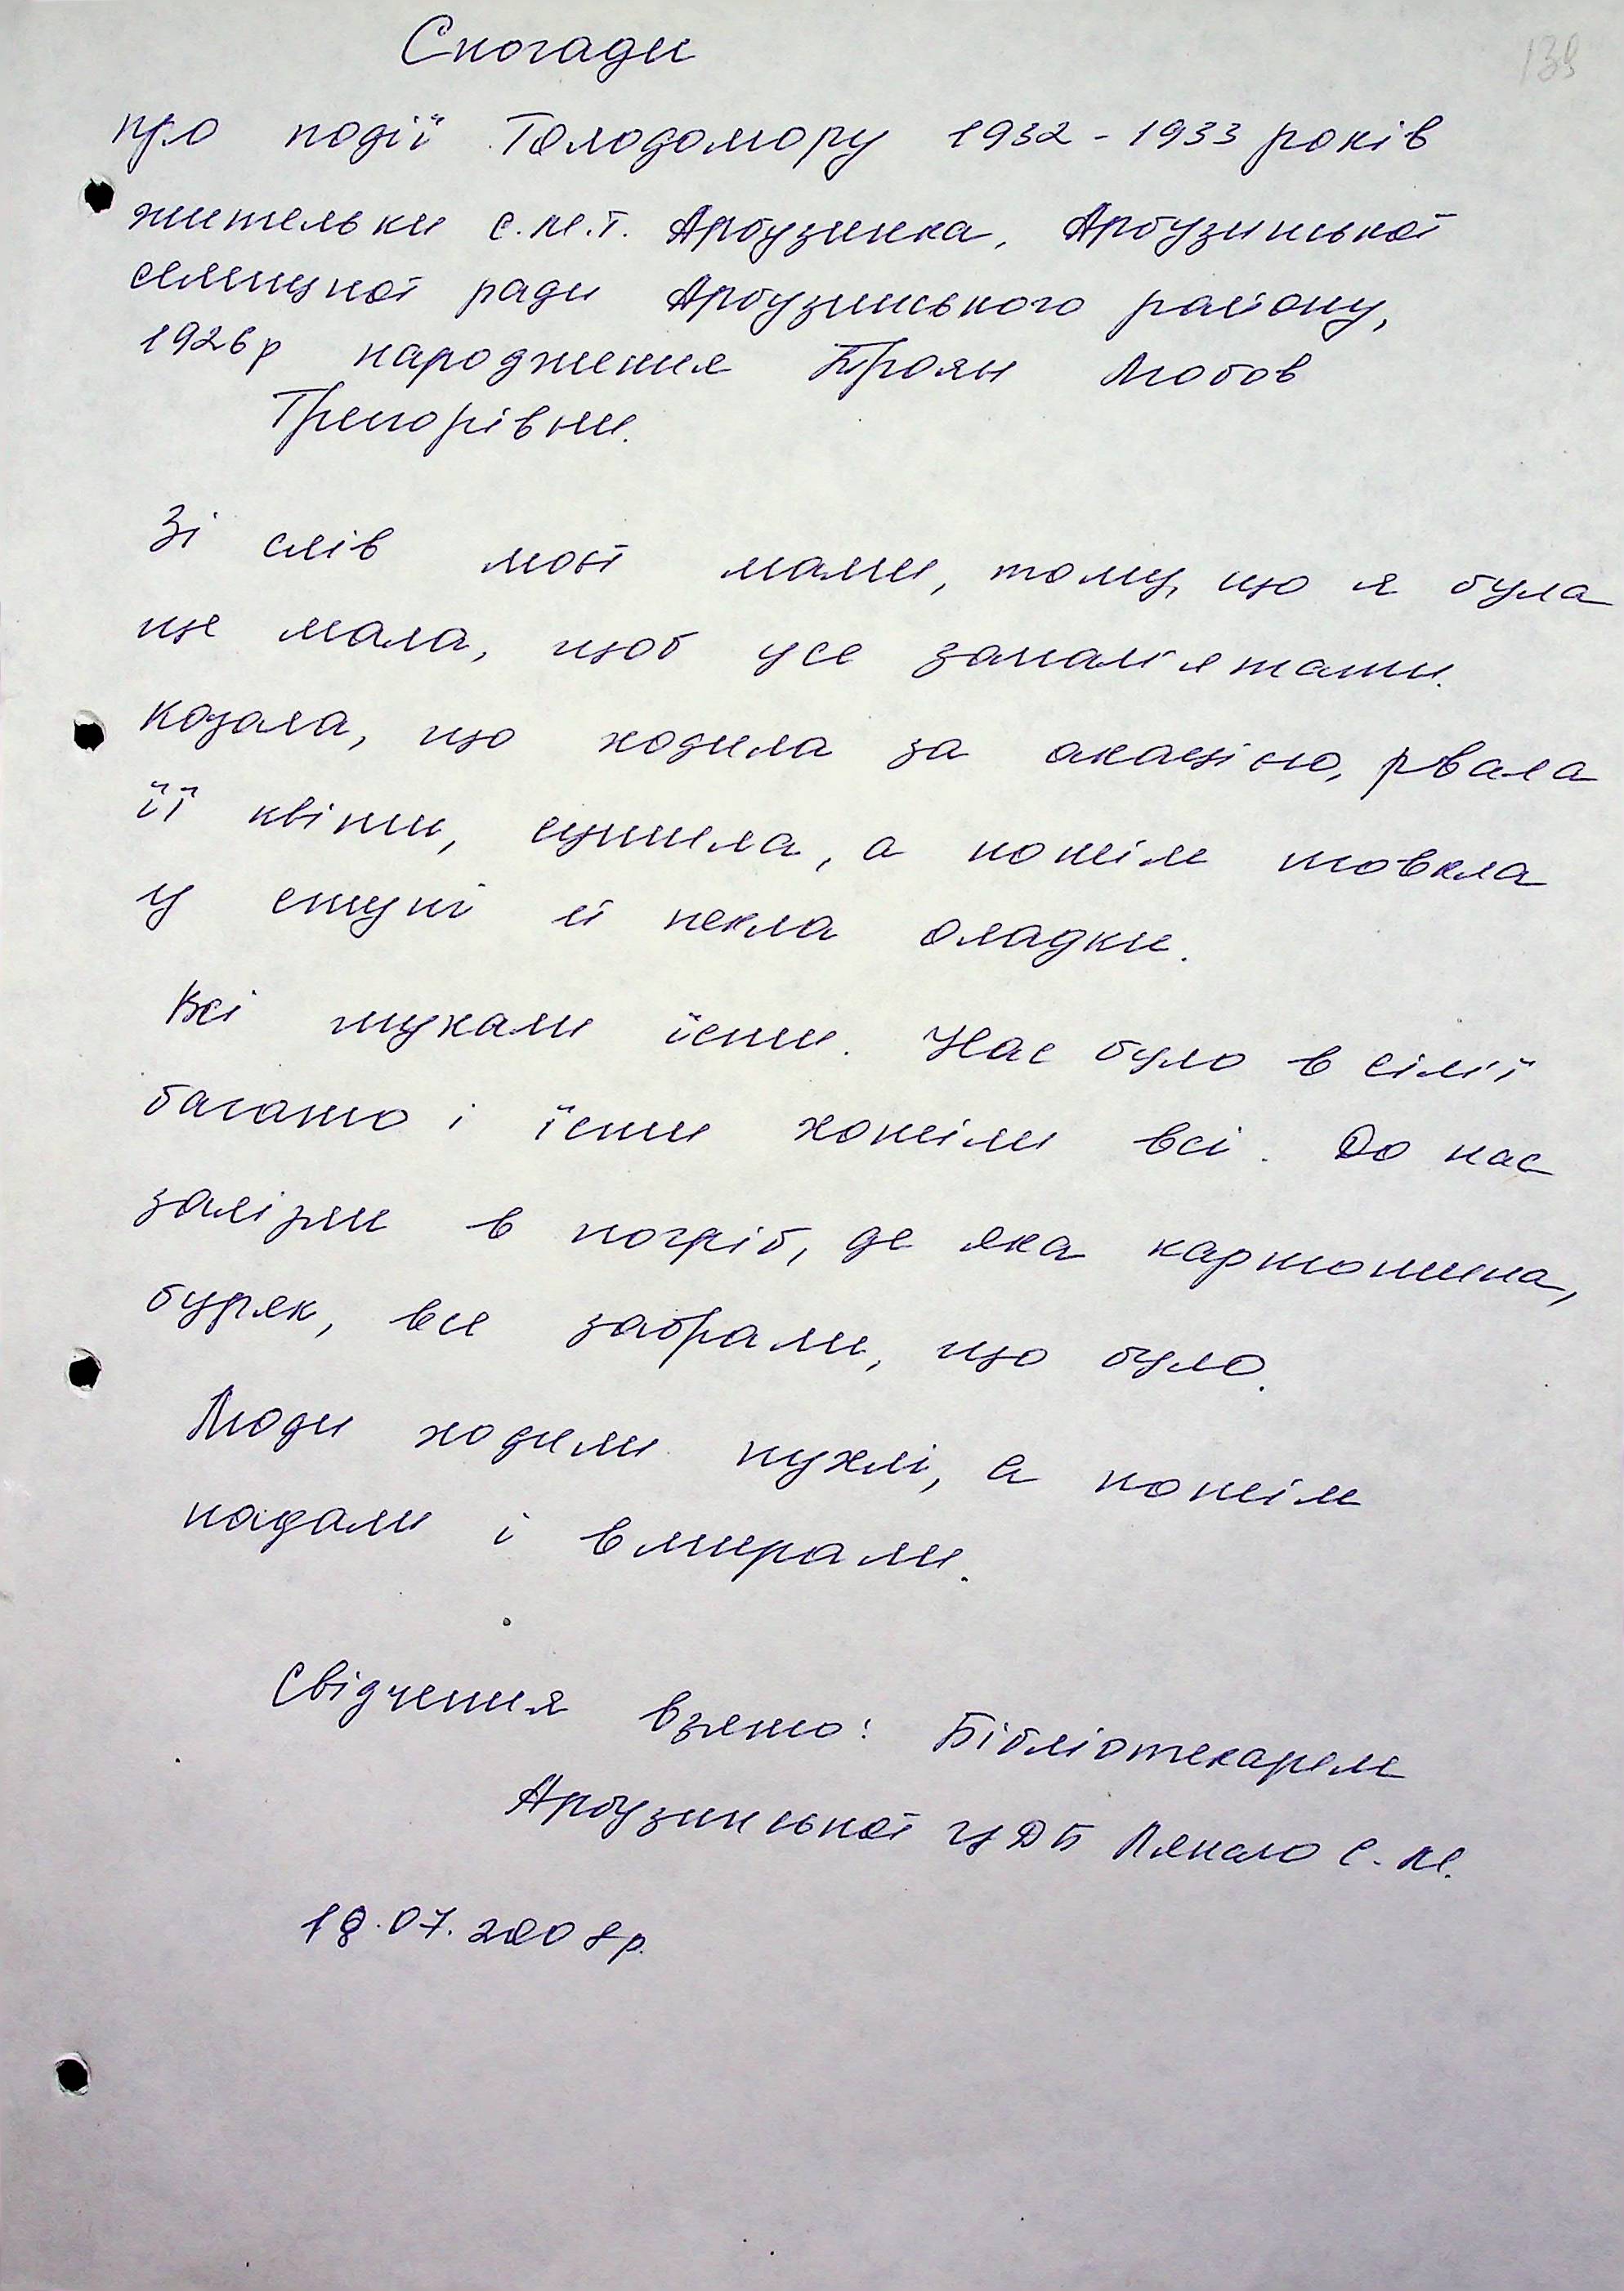 139
Спогади
про події Голодомору 1932 - 1933 років
жительки с.м.т. Арбузинка, Арбузинської
селищної ради Арбузинського району,
1926 р народження Троян Любов
Григорівни.
Зі слів моєї мами, тому, що я була
ще мала, щоб усе запам'ятати.
Казала, що ходила за акацією, рвала
її квіти, сушила, а потім товкла
у ступі й пекла оладки.
Всі шукали їсти. Нас було в сім'ї
багато і їсти хотіли всі. До нас
залізли в погріб, де яка картопина,
буряк, все забрали, що було.
Люди ходили пухлі, а потім
падали і вмирали.
Свідчення взято: Бібліотекарем
Арбузинської ЦДБ С. М.
18.07.2008 р.